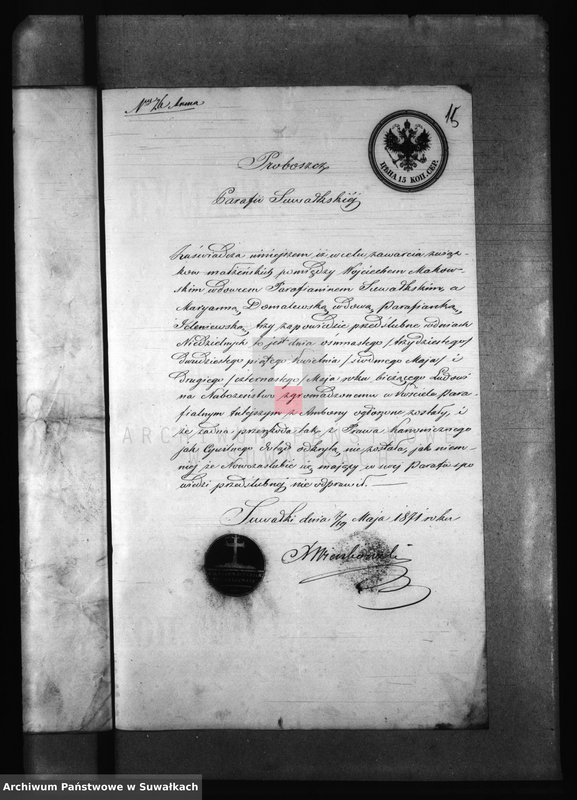 15
ЦѢНА 15 КОП. СЕР.
Proboszcz
Parafii Suwałkskiéj
Zaświadcza niniejszem iż w celu zawarcia związ-
ków małżeńskich pomiędzy Wojciechem Makow-
skim wdowcem Parafianinem Suwałkskim, a
Maryanną Domalewską wdową Parafianką
Jeleniewską, trzy zapowiedzie przedślubne w dniach
Niedzielnych to jest dnia osmnastego /trzydziestego/
dwudziestego piątego Kwietnia /siódmego Maja/ i
drugiego /czternastego/ Maja roku bieżącego Ludowi
na Nabożeństwo zgromadzonemu w Kościele Para-
fialnym tutejszym z Ambony ogłoszone zostały, i
że żadna przeszkoda tak z Prawa kanonicznego
jak Cywilnego dotąd odkrytą nie została, jak niem-
niéj że Nowozaślubić się mający w swej Parafii spo-
wiedzi przedślubnej nie odprawił.
Suwałki dnia 7/19 Maja 1891 roku
ARCH
Archiwum Państwowe w Suwałkach